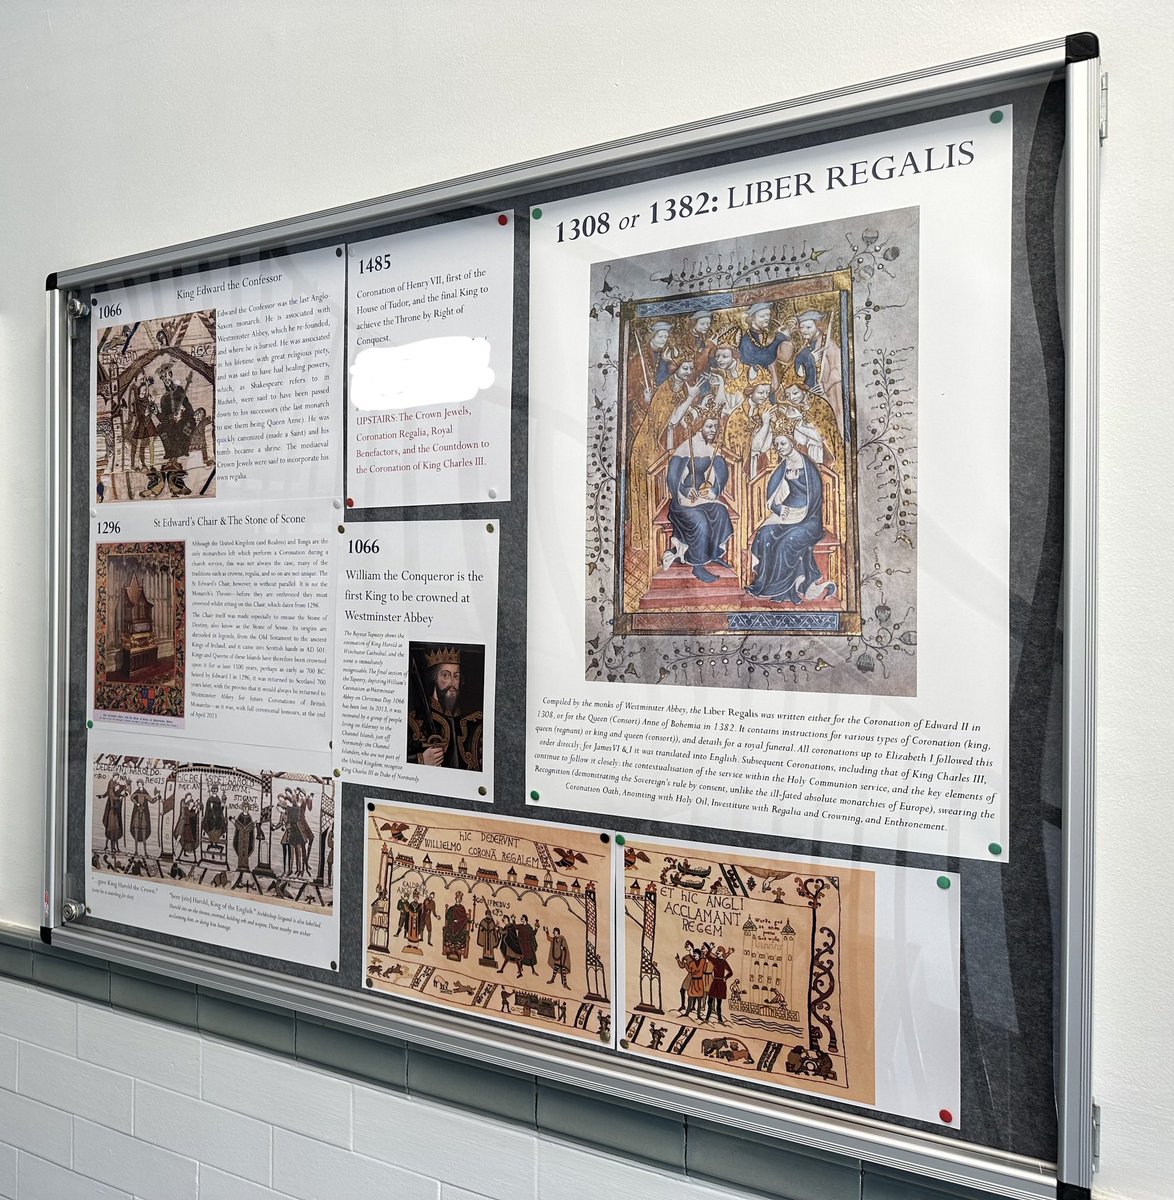 King Edward the Confessor
1066
Edward the Confessor was the last Anglo-
Saxon monarch. He is associated with
Westminster Abbey, which he re-founded,
and where he is buried. He was associated
in his lifetime with great religious piety,
and was said to have had healing powers,
which, as Shakespeare refers to in
Macbeth, were said to have been passed
down to his successors (the last monarch
to use them being Queen Anne). He was
quickly canonized (made a Saint) and his
tomb became a shrine. The mediaeval
Crown Jewels were said to incorporate his
own regalia.
REX:
1296
St Edward's Chair & The Stone of Scone
Although the United Kingdom (and Realms) and Tonga are the
only monarchies left which perform a Coronation during a
church service, this was not always the case, many of the
traditions such as crowns, regalia, and so on are not unique. The
St Edward's Chair, however, is without parallel. It is not the
Monarch's Throne—before they are enthroned they must
crowned whilst sitting on this Chair, which dates from 1296.
The Chair itself was made especially to encase the Stone of
Destiny, also know as the Stone of Scone. Its origins are
shrouded in legends, from the Old Testament to the ancient
Kings of Ireland, and it came into Scottish hands in AD 501.
Kings and Queens of these Islands have therefore been crowned
upon it for at least 1500 years, perhaps as early as 700 BC.
Seized by Edward I in 1296, it was returned to Scotland 700
years later, with the proviso that it would always be returned to
Westminster Abbey for future Coronations of British
Monarchs—as it was, with full ceremonial honours, at the end
of April 2023.
DEDERVNT: HAROLDO:
REGIS
STIGANT
"... gave King Harold the Crown."
"here [sits] Harold, King of the English." Archbishop Stigand is also labelled.
Harold sits on the throne, crowned, holding orb and sceptre. Those nearby are either
acclaiming him, or doing him homage.
1485
Coronation of Henry VII, first of the
House of Tudor, and the final King to
achieve the Throne by Right of
Conquest.
UPSTAIRS: The Crown Jewels,
Coronation Regalia, Royal
Benefactors, and the Countdown to
the Coronation of King Charles III.
1066
William the Conqueror is the
first King to be crowned at
Westminster Abbey
The Bayeux Tapestry shows the
coronation of King Harold at
Winchester Cathedral, and the
scene is immediately
recognisable. The final section of
the Tapestry, depicting William's
Coronation at Westminster
Abbey on Christmas Day 1066
has been lost. In 2013, it was
recreated by a group of people
living on Alderney in the
Channel Islands, just off
Normandy: the Channel
Islanders, who are not part of
the United Kingdom, recognise
King Charles III as Duke of Normandy.
1308 or 1382: LIBER REGALIS
Compiled by the monks of Westminster Abbey, the Liber Regalis was written either for the Coronation of Edward II in
1308, or for the Queen (Consort) Anne of Bohemia in 1382. It contains instructions for various types of Coronation (king,
queen (regnant) or king and queen (consort)), and details for a royal funeral. All coronations up to Elizabeth I followed this
order directly; for James VI & I it was translated into English. Subsequent Coronations, including that of King Charles III,
continue to follow it closely: the contextualisation of the service within the Holy Communion service, and the key elements of
Recognition (demonstrating the Sovereign's rule by consent, unlike the ill-fated absolute monarchies of Europe), swearing the
Coronation Oath, Anointing with Holy Oil, Investiture with Regalia and Crowning, and Enthronement.
HIC DEDERVNT
WILLIELMO CORONA REGALEM
ET HIC ANGLI
ACCLAMANT
REGEM